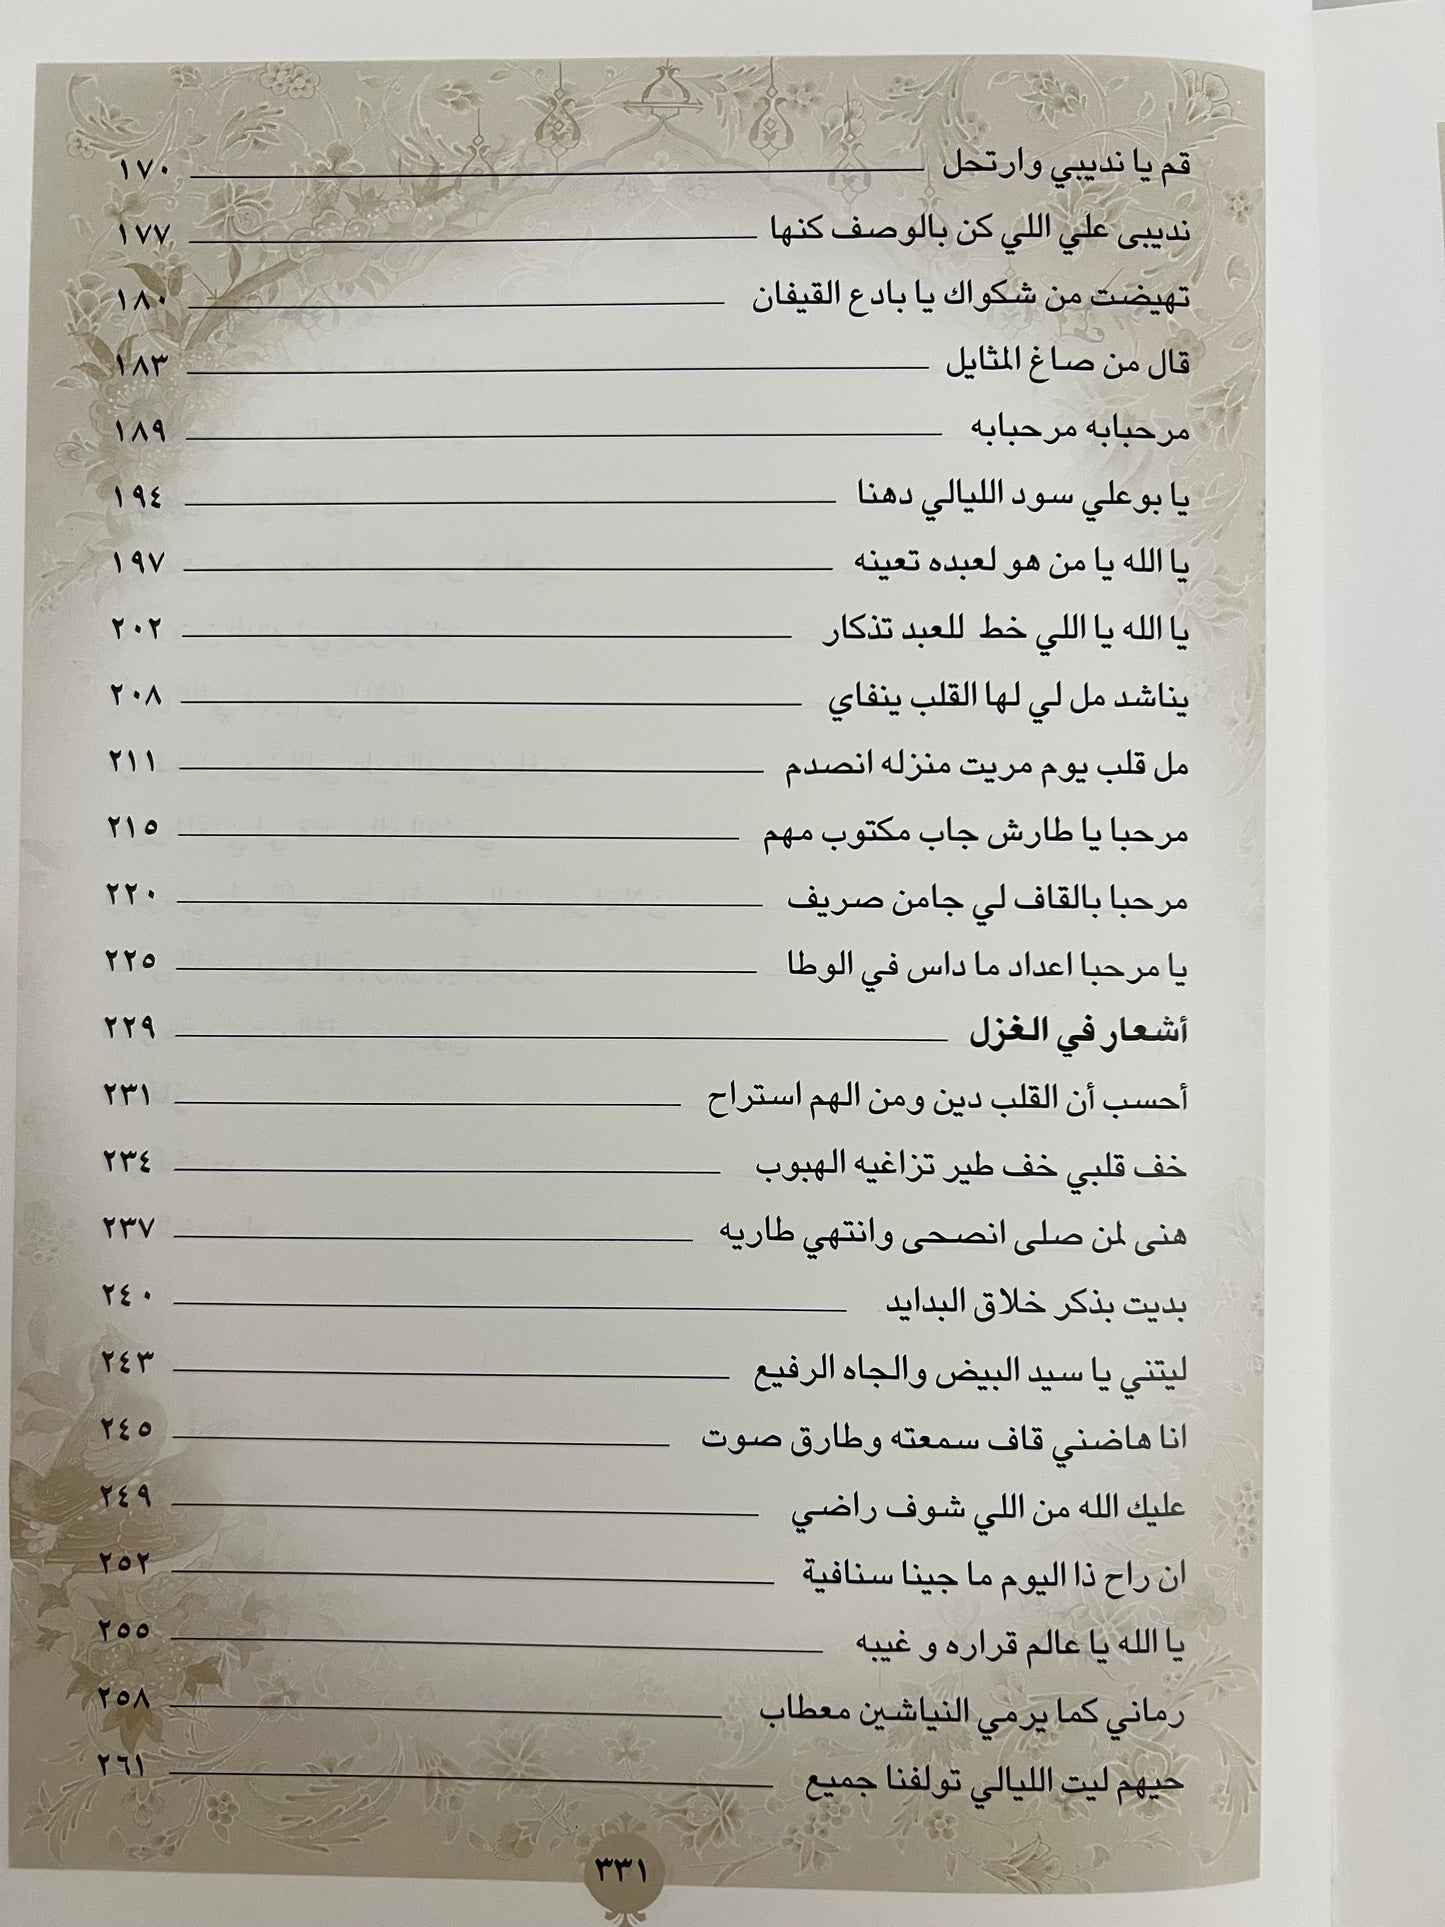 قم يا نديبي وارتحل ١٧٠
نديبى علي اللي كن بالوصف كنها ١٧٧
تهيضت من شكواك يا بادع القيفان ١٨٠
قال من صاغ المثايل ١٨٣
مرحبابه مرحبابه ١٨٩
يا بوعلي سود الليالي دهنا ١٩٤
يا الله يا من هو لعبده تعينه ١٩٧
يا الله يا اللي خط للعبد تذكار ٢٠٢
يناشد مل لي لها القلب ينفاي ٢٠٨
مل قلب يوم مريت منزله انصدم ٢١١
مرحبا يا طارش جاب مكتوب مهم ٢١٥
مرحبا بالقاف لي جامن صريف ٢٢٠
يا مرحبا اعداد ما داس في الوطا ٢٢٥
أشعار في الغزل ٢٢٩
أحسب أن القلب دين ومن الهم استراح ٢٣١
خف قلبي خف طير تزاغيه الهبوب ٢٣٤
هنى لمن صلى انصحى وانتهي طاريه ٢٣٧
بديت بذكر خلاق البدايد ٢٤٠
ليتني يا سيد البيض والجاه الرفيع ٢٤٣
انا هاضني قاف سمعته وطارق صوت ٢٤٥
عليك الله من اللي شوف راضي ٢٤٩
ان راح ذا اليوم ما جينا سنافية ٢٥٢
يا الله يا عالم قراره و غيبه ٢٥٥
رماني كما يرمي النياشين معطاب ٢٥٨
حيهم ليت الليالي تولفنا جميع ٢٦١
٣٣١